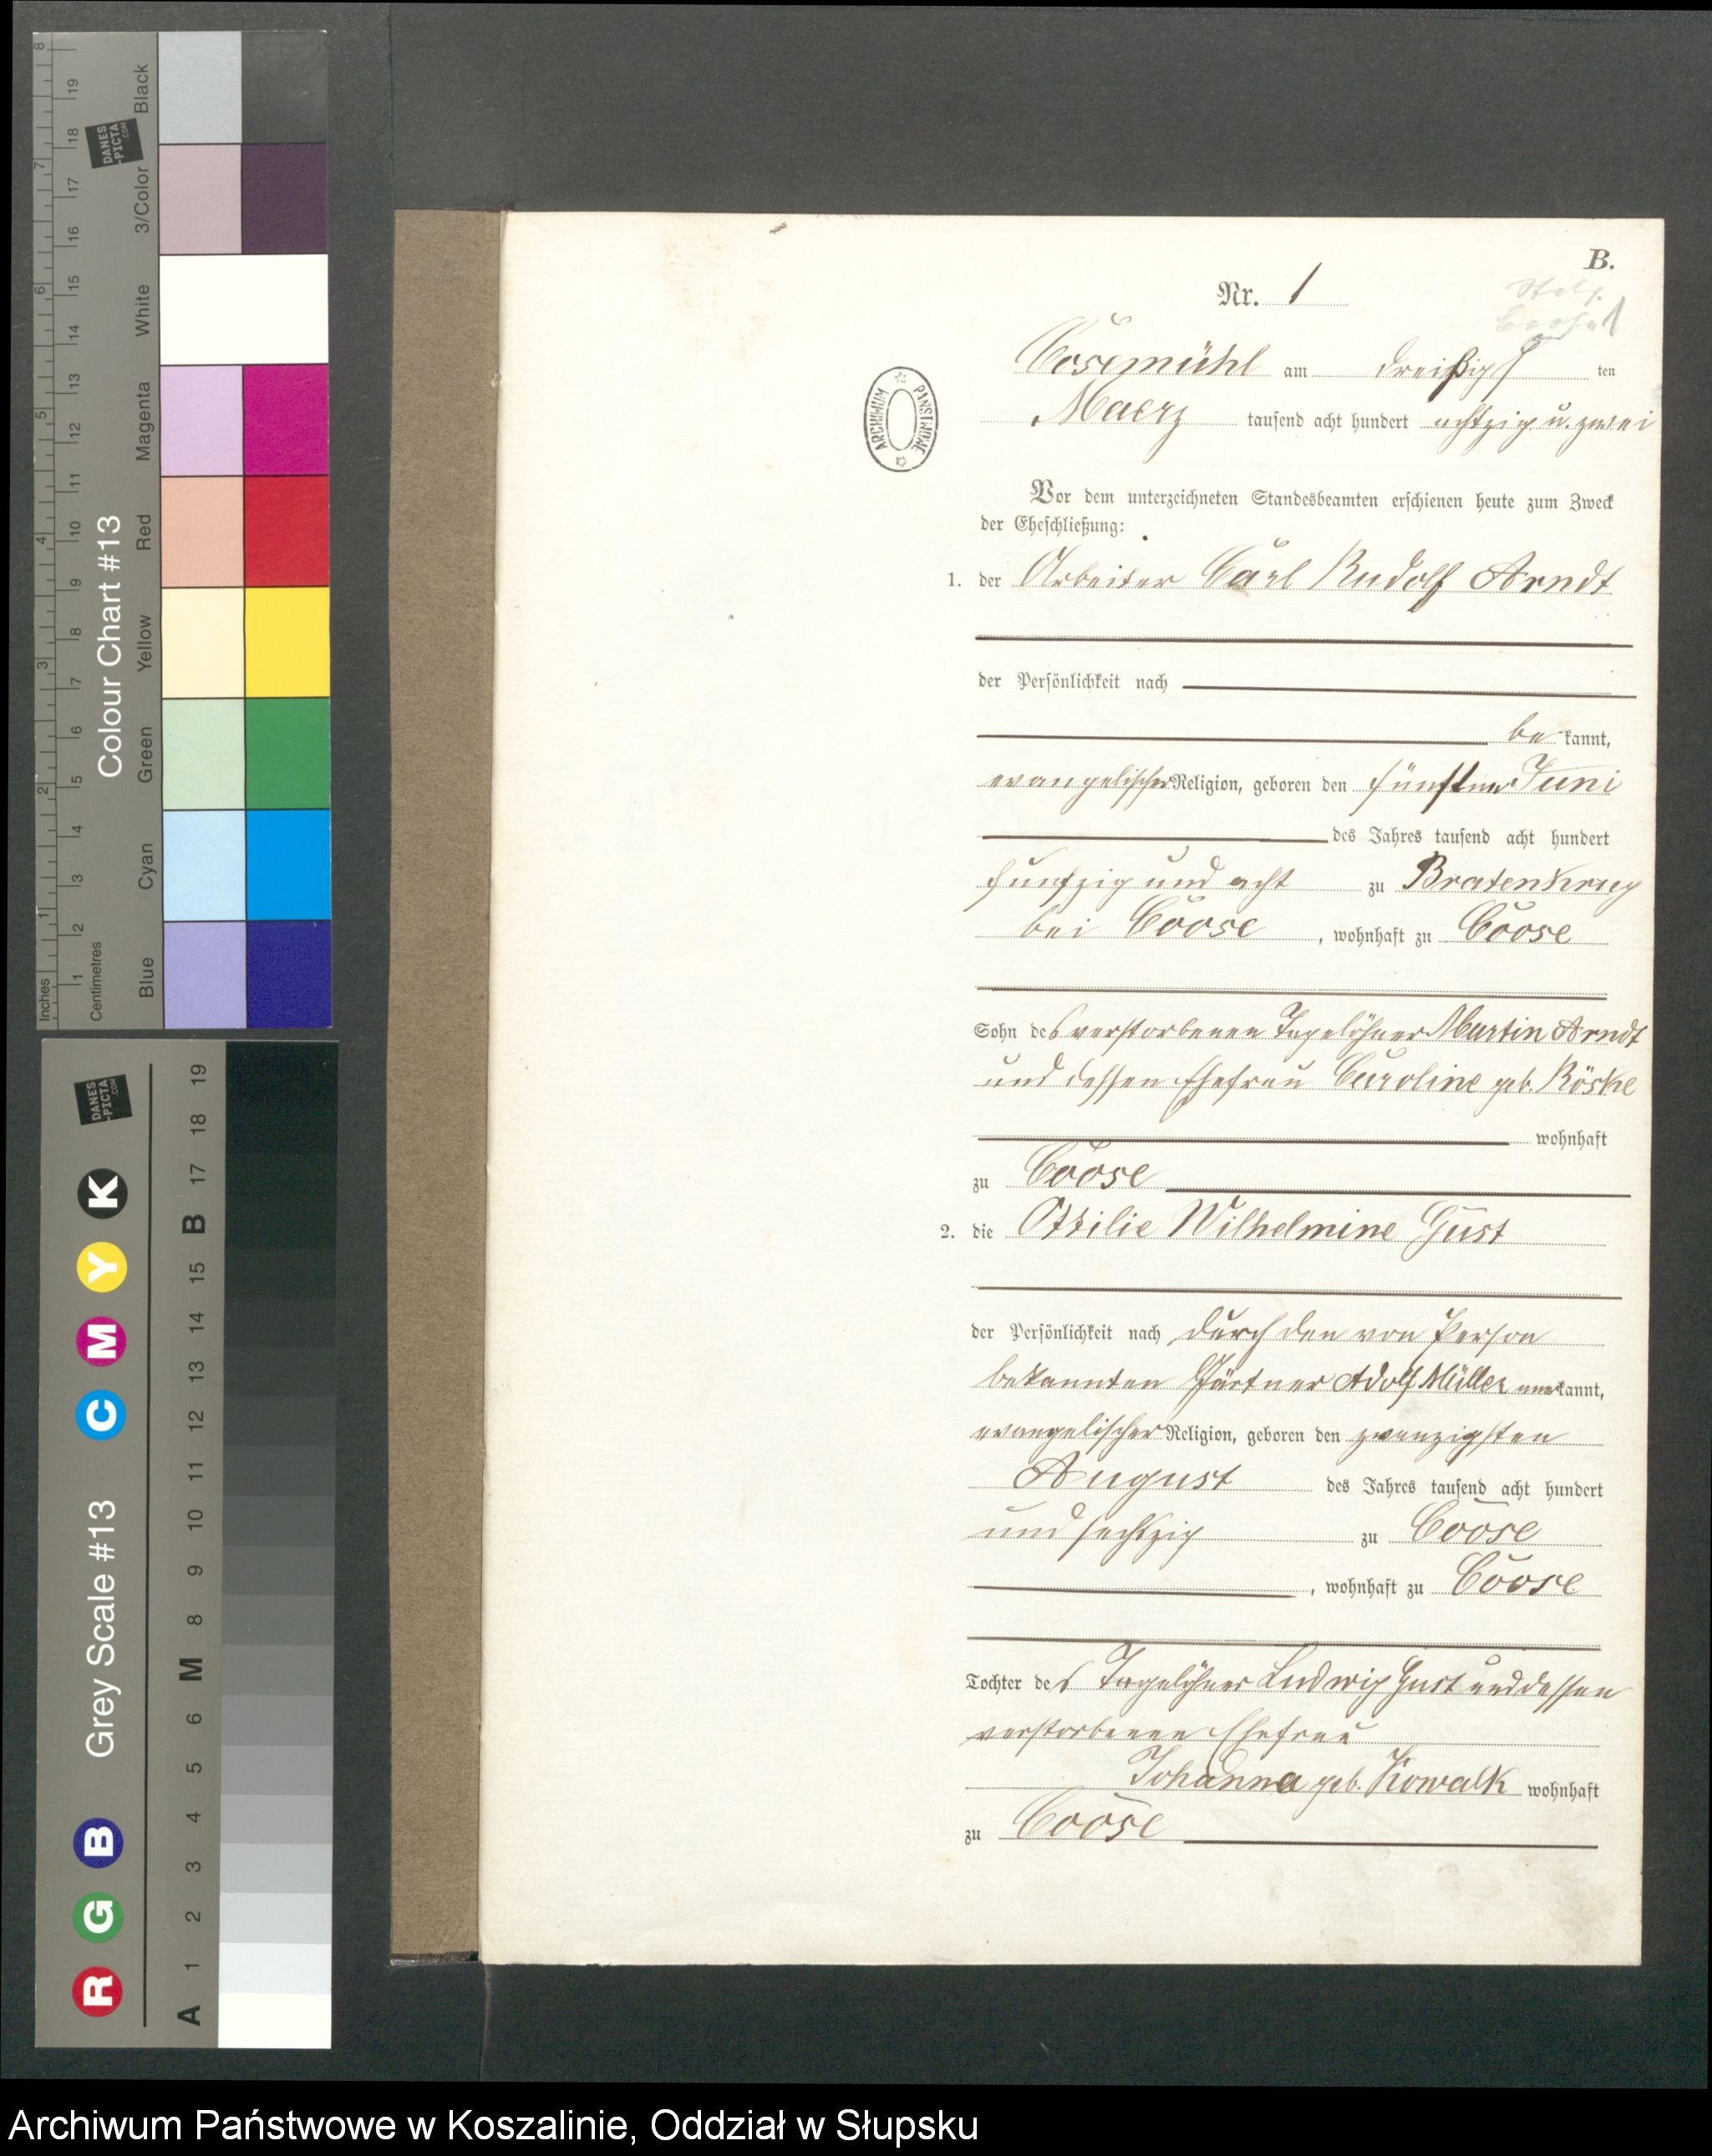 8
19
Black
DANES
-PICTA
.COM
18
7
17
3/Color
16
6
15
White
14
13
5
12
Magenta
11
10
4
Red
9
8
3
Yellow
7
6
Green
5
2
4
Cyan
3
1
2
1
Blue
Inches
Centimetres
Colour Chart #13
DANES
-PICTA
.COM
K
Y
M
C
B
G
R
Grey Scale #13
19
18
17
B
15
14
13
12
11
10
9
8
M
6
5
4
3
2
1
A
B.
Nr. 1
Cosemühl am dreißigst ten
Maerz tausend acht hundert achtzig u. zwei
ARCHIWUM PAŃSTWOWE
Vor dem unterzeichneten Standesbeamten erschienen heute zum Zweck
der Eheschließung:
1. der Arbeiter Carl Rudolf Arndt
der Persönlichkeit nach
be kannt,
evangelischer Religion, geboren den fünften Juni
des Jahres tausend acht hundert
funfzig und acht zu Bratenkrug
bei Coose, wohnhaft zu Coose
Sohn des verstorbenen Tagelöhner Martin Arndt
und dessen Ehefrau Caroline geb. Röske
wohnhaft
zu Coose
2. die Ottilie Wilhelmine Gust
der Persönlichkeit nach durch den von Person
bekannten Gärtner Adolf Müller anerkannt,
evangelischer Religion, geboren den zwanzigsten
August des Jahres tausend acht hundert
und sechzig zu Coose
, wohnhaft zu Coose
Tochter des Tagelöhner Ludwig Gust und dessen
verstorbenen Ehefrau
Johanna geb. Kowalk wohnhaft
zu Coose
Archiwum Państwowe w Koszalinie, Oddział w Słupsku